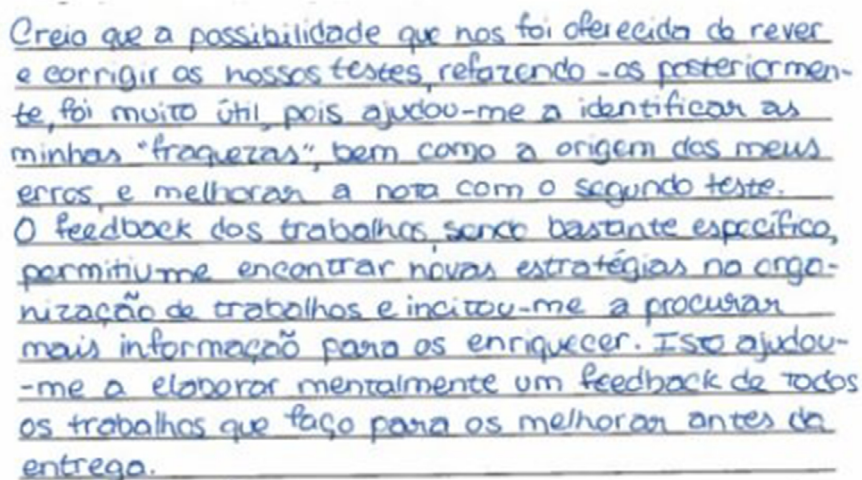 Creio que a possibilidade que nos foi oferecida de rever
e corrigir os nossos testes, refazendo-os posteriormen-
te, foi muito útil, pois ajudou-me a identificar as
minhas "fraquezas", bem como a origem dos meus
erros, e melhorar a nota com o segundo teste.
O feedback dos trabalhos, sendo bastante específico,
permitiu-me encontrar novas estratégias na orga-
nização de trabalhos e incitou-me a procurar
mais informação para os enriquecer. Isto ajudou-
-me a elaborar mentalmente um feedback de todos
os trabalhos que faço para os melhorar antes da
entrega.